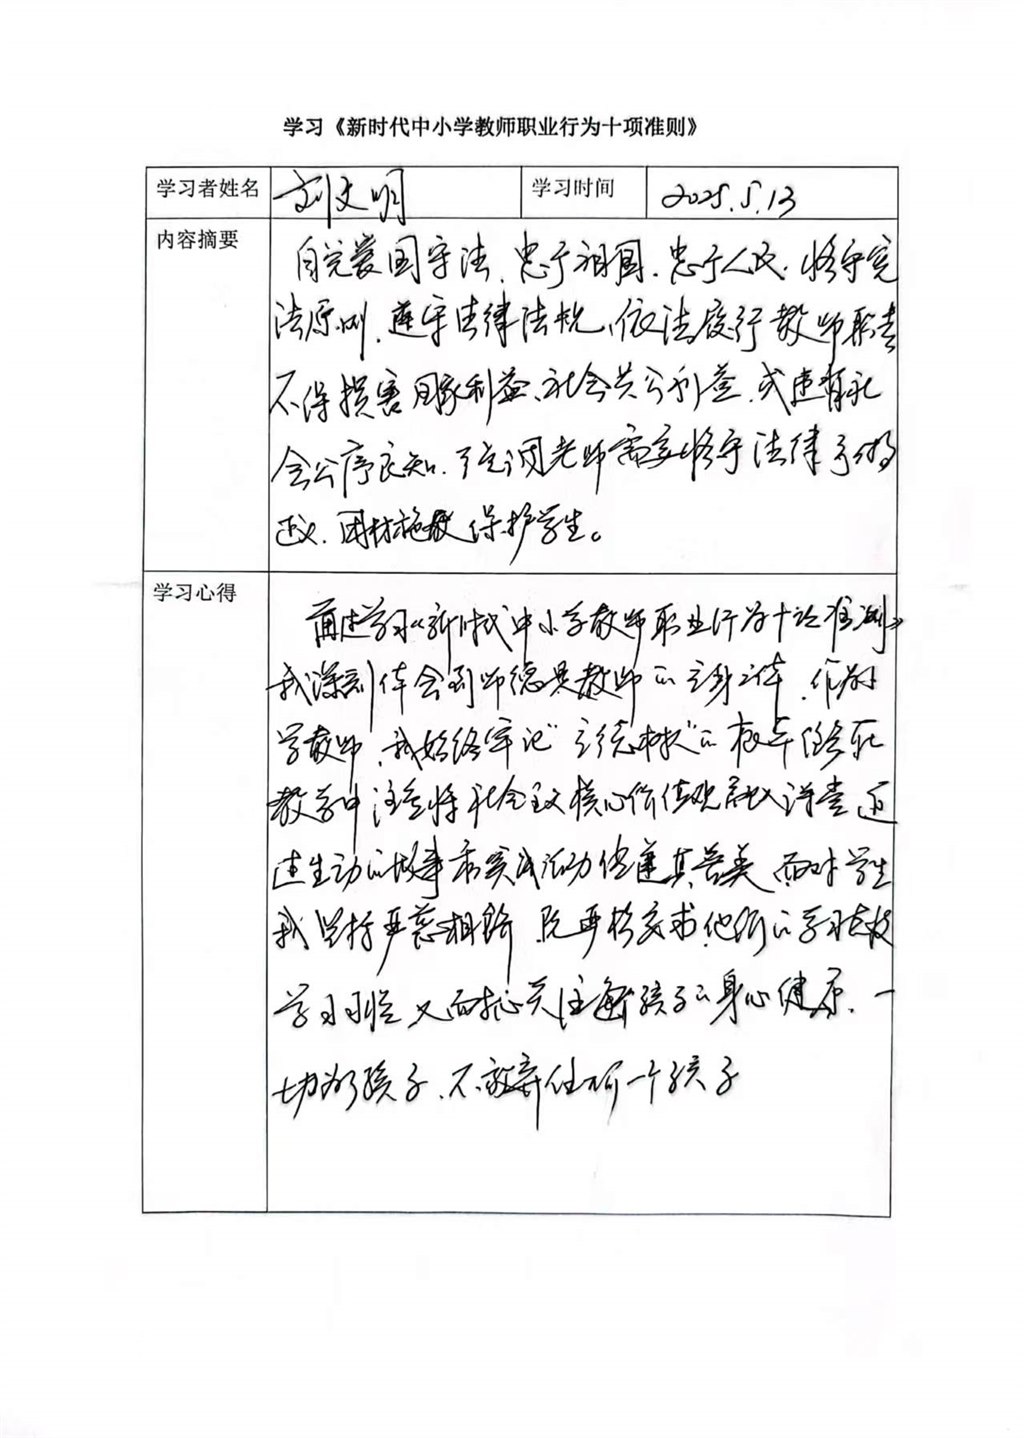 学习《新时代中小学教师职业行为十项准则》
学习者姓名 刘文明 学习时间 2025.5.13
内容摘要
自觉爱国守法、忠于祖国、忠于人民、恪守宪
法原则、遵守法律法规、依法履行教师职责
不得损害国家利益、社会公共利益、或违背社
会公序良知、强调老师需要恪守法律
正义、因材施教 保护学生。
学习心得
通过学习《新时代中小学教师职业行为十项准则》
我深刻体会到师德是教师的立身之本、作为
学教师、我始终牢记“立德树人”的根本任务 在
教学中 注意将社会主义核心价值观融入课堂 通
过生动的故事和实践活动传递真善美 面对学生
我坚持严慈相济 既严格要求他们的学习态度
学习习惯 又耐心关注每个孩子的身心健康、一
切为了孩子、不放弃任何一个孩子